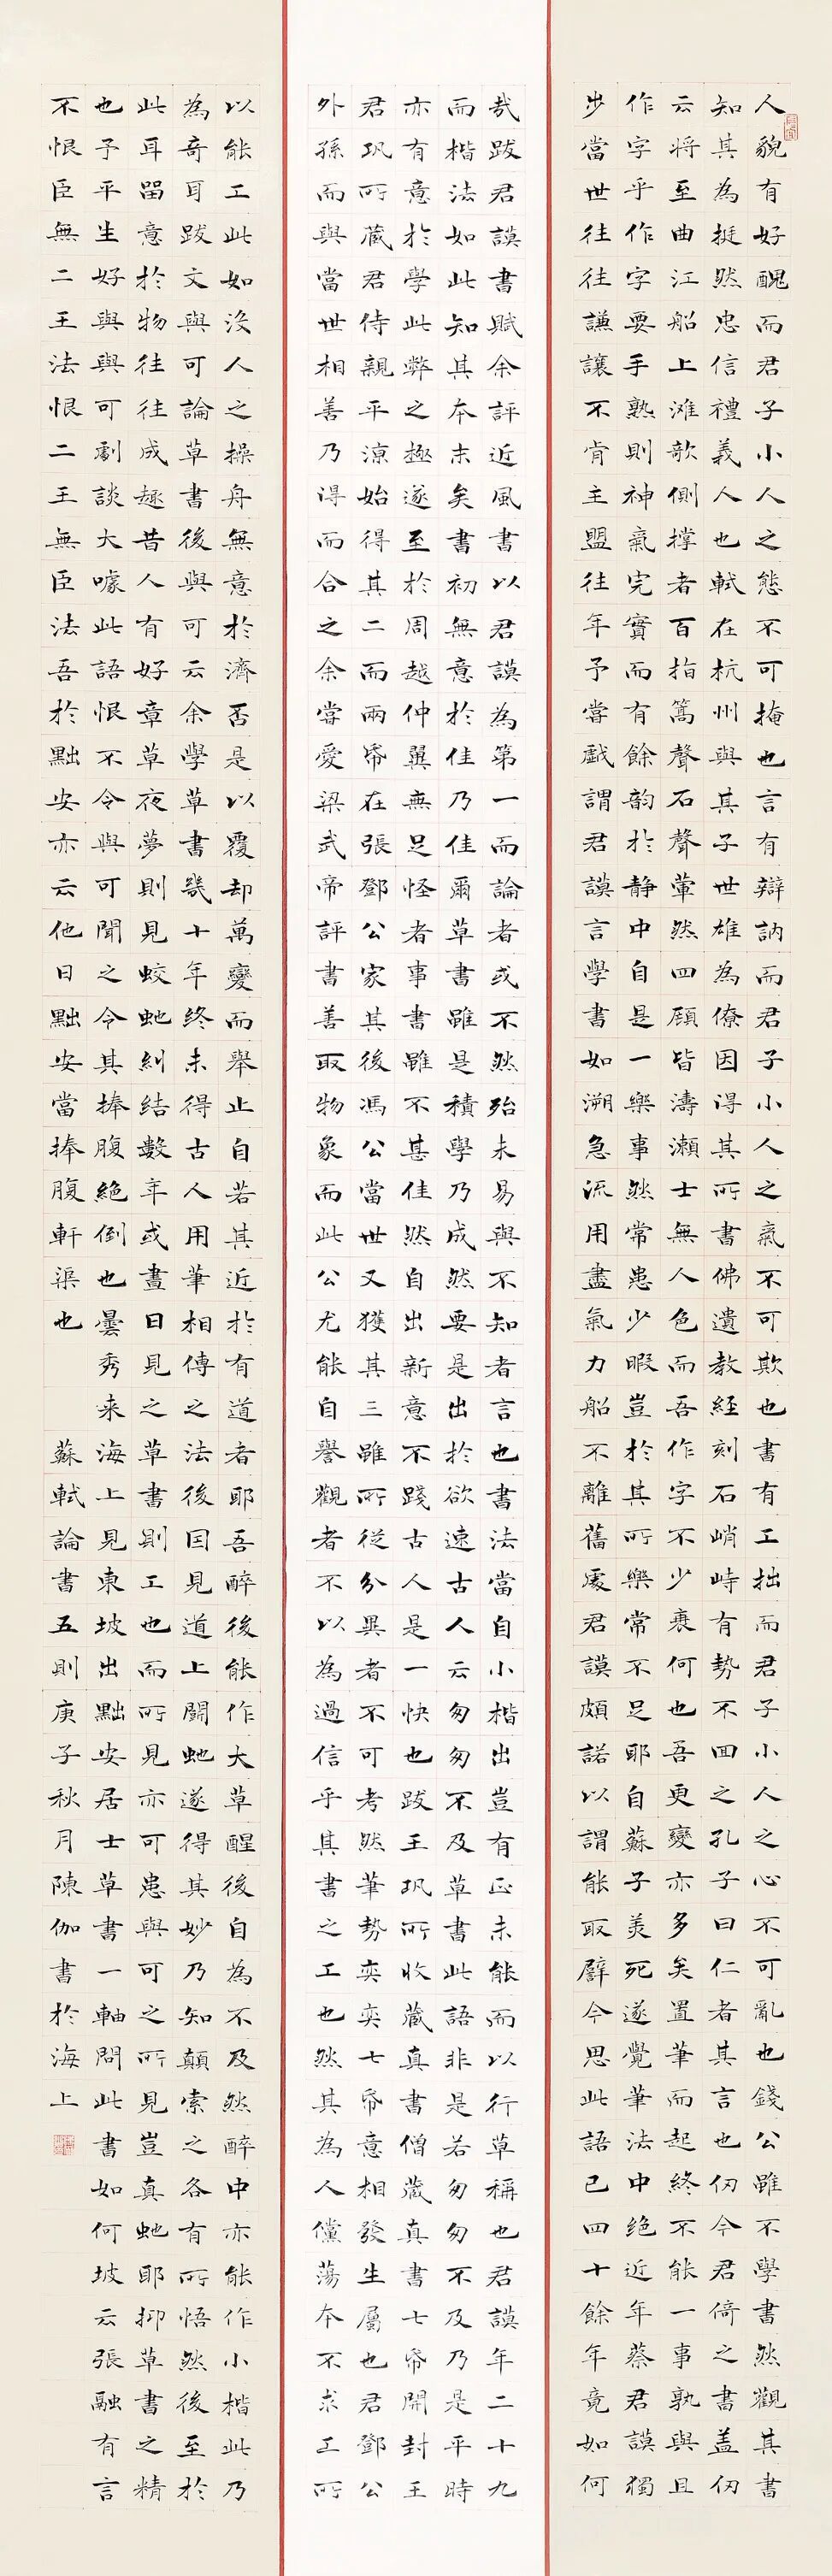 人貌有好醜而君子小人之態不可掩也言有辯訥而君子小人之氣不可欺也書有工拙而君子小人之心不可亂也錢公雖不學書然觀其書
知其為挺然忠信禮義人也軾在杭州與其子世雄為僚因得其所書佛遺教經刻石峭峙有勢不回之孔子曰仁者其言也仞今君倚之書盖仞
云將至曲江船上滩歌側撑者百指篙聲石聲葷然四顾皆濤瀨士無人色而吾作字不少衰何也吾更變亦多矣置筆而起終不能一事孰與且
作字乎作字要手熟則神氣完實而有餘韵於静中自是一樂事然常患少暇豈於其所樂常不足耶自蘇子美死遂覺筆法中绝近年蔡君謨獨
步當世往往謙讓不肯主盟往年予嘗戲謂君謨言學書如溯急流用盡氣力船不離舊處君謨頗諾以謂能取譬今思此語已四十餘年竟如何
哉跋君謨書賦余評近風書以君謨為第一而論者或不然殆未易與不知者言也書法當自小楷出豈有正未能而以行草稱也君謨年二十九
而楷法如此知其本末矣書初無意於佳乃佳爾草書雖是積學乃成然要是出於欲速古人云匆匆不及草書此語非是若匆匆不及乃是平時
亦有意於學此弊之極遂至於周越仲翼無足怪者事書雖不甚佳然自出新意不踐古人是一快也跋王巩所收藏真書僧藏真書七帋開封王
君巩所藏君侍親平涼始得其二而兩帋在張鄧公家其後馮公當世又獲其三雖所從分異者不可考然筆勢奕奕七帋意相發生屬也君鄧公
外孫而與當世相善乃得而合之余嘗愛梁武帝評書善取物象而此公尤能自譽觀者不以為過信乎其書之工也然其為人儻蕩本不求工所
以能工此如沒人之操舟無意於濟否是以覆却萬變而舉止自若其近於有道者耶吾醉後能作大草醒後自為不及然醉中亦能作小楷此乃
為奇耳跋文與可論草書後與可云余學草書幾十年終未得古人用筆相傳之法後因見道上鬪蛇遂得其妙乃知顛索之各有所悟然後至於
此耳留意於物往往成趣昔人有好章草夜夢則見蛟蛇糾結數年或晝日見之草書則工也而所見亦可患與可之所見豈真蛇耶抑草書之精
也予平生好與與可劇談大噱此語恨不令與可聞之令其捧腹絕倒也曇秀来海上見東坡出黜安居士草書一軸問此書如何坡云張融有言
不恨臣無二王法恨二王無臣法吾於黜安亦云他日黜安當捧腹軒渠也 蘇軾論書五則庚子秋月陳伽書於海上